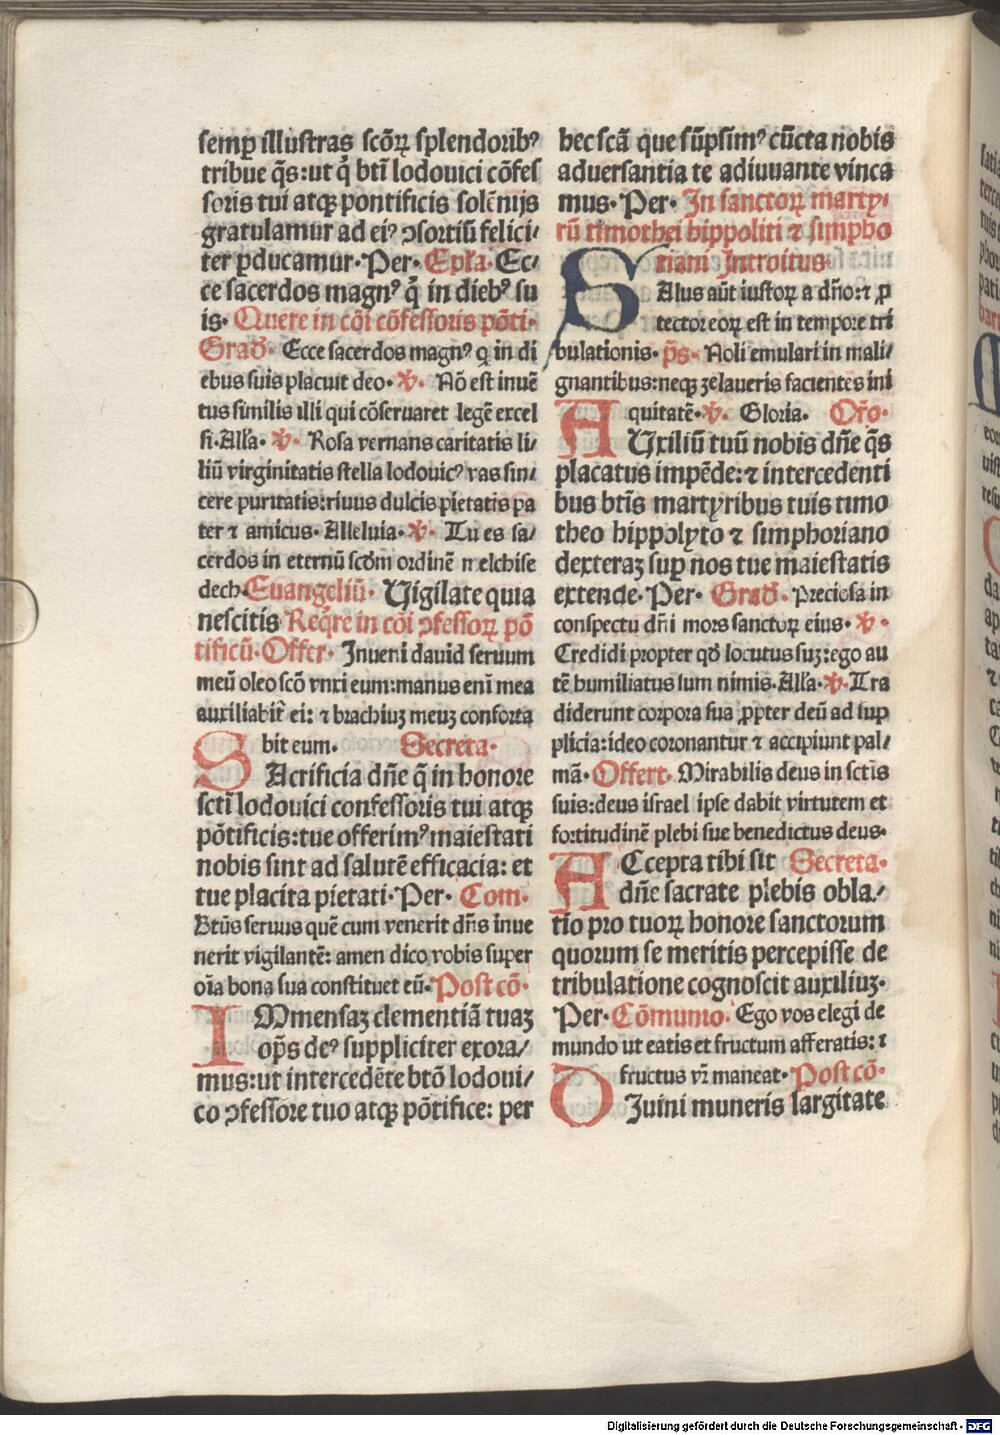 semꝑ illustras scōꝝ splendoribꝰ
tribue q̄s:ut q̇ btī lodouici cōfes
soris tui atqꝫ pontificis solēnijs
gratulamur ad eiꝰ ꝯsortiū felici/
ter ꝑducamur· Per· Epl̄a· Ec/
ce sacerdos magnꝰ q̇ in diebꝰ su
is· Quere in cōi cōfessoris pōti·
Grad̄· Ecce sacerdos magnꝰ q̇ in di
ebus suis placuit deo· ℣· Nō est inuē
tus similis illi qui cōseruaret legē excel
si· All̄a· ℣· Rosa vernans caritatis li/
liū virginitatis stella lodouicꝰ vas sin/
cere puritatis:riuus dulcis pietatis pa
ter ⁊ amicus· Alleluia· ℣· Tu es sa/
cerdos in eternū scd̄m ordinē melchise
dech· Euangeliū· Vigilate quia
nescitis Req̇re in cōi ꝯfessoꝝ pō
tificū· Offer· Inueni dauid seruum
meū oleo scō vnxi eum:manus eni mea
auxiliabit̄ ei: ⁊ brachiuꝫ meuꝫ conforta
bit eum· Secreta·
SAcrificia dn̄e q̄ in honore
sctī lodouici confessoris tui atqꝫ
pōtificis:tue offerimꝰ maiestati
nobis sint ad salutē efficacia: et
tue placita pietati· Per· Com·
Btūs seruus quē cum venerit dn̄s inue
nerit vigilantē: amen dico vobis super
oīa bona sua constituet eū· Post cō·
IMmensaꝫ clementiā tuaꝫ
op̄s deꝰ suppliciter exora/
mus:ut intercedēte btō lodoui/
co ꝯfessore tuo atqꝫ pōtifice: per
hec scā que sūpsimꝰ cūcta nobis
aduersantia te adiuuante vinca
mus· Per· In sanctoꝝ marty·
rū timothei hippoliti ⁊ simpho
riani Introitus·
SAlus aūt iustoꝝ a dn̄o:⁊ ꝓ
tector eoꝝ est in tempore tri
bulationis· p̄s· Noli emulari in mali/
gnantibus:neqꝫ zelaueris facientes ini
quitatē· ℣· Gloria· Or̄o·
AUxiliū tuū nobis dn̄e q̄s
placatus impēde:⁊ intercedenti
bus btīs martyribus tuis timo
theo hippolyto ⁊ simphoriano
dexteraꝫ suꝑ nos tue maiestatis
extende· Per· Grad̄· Preciosa in
conspectu dn̄i mors sanctoꝝ eius· ℣·
Credidi propter qd̄ locutus suꝫ:ego au
tē humiliatus sum nimis· All̄a· ℣· Tra
diderunt corpora sua ꝓpter deū ad sup
plicia:ideo coronantur ⁊ accipiunt pal/
mā· Offert· Mirabilis deus in sctīs
suis:deus israel ipse dabit virtutem et
fortitudinē plebi sue benedictus deus·
ACcepta tibi sit Secreta·
dn̄e sacrate plebis obla/
tio pro tuoꝝ honore sanctorum
quorum se meritis percepisse de
tribulatione cognoscit auxiliuꝫ·
Per· Cōmunio· Ego vos elegi de
mundo ut eatis et fructum afferatis: ⁊
fructus vr̄ maneat· Post cō·
DIuini muneris largitate
Digitalisierung gefördert durch die Deutsche Forschungsgemeinschaft - DFG